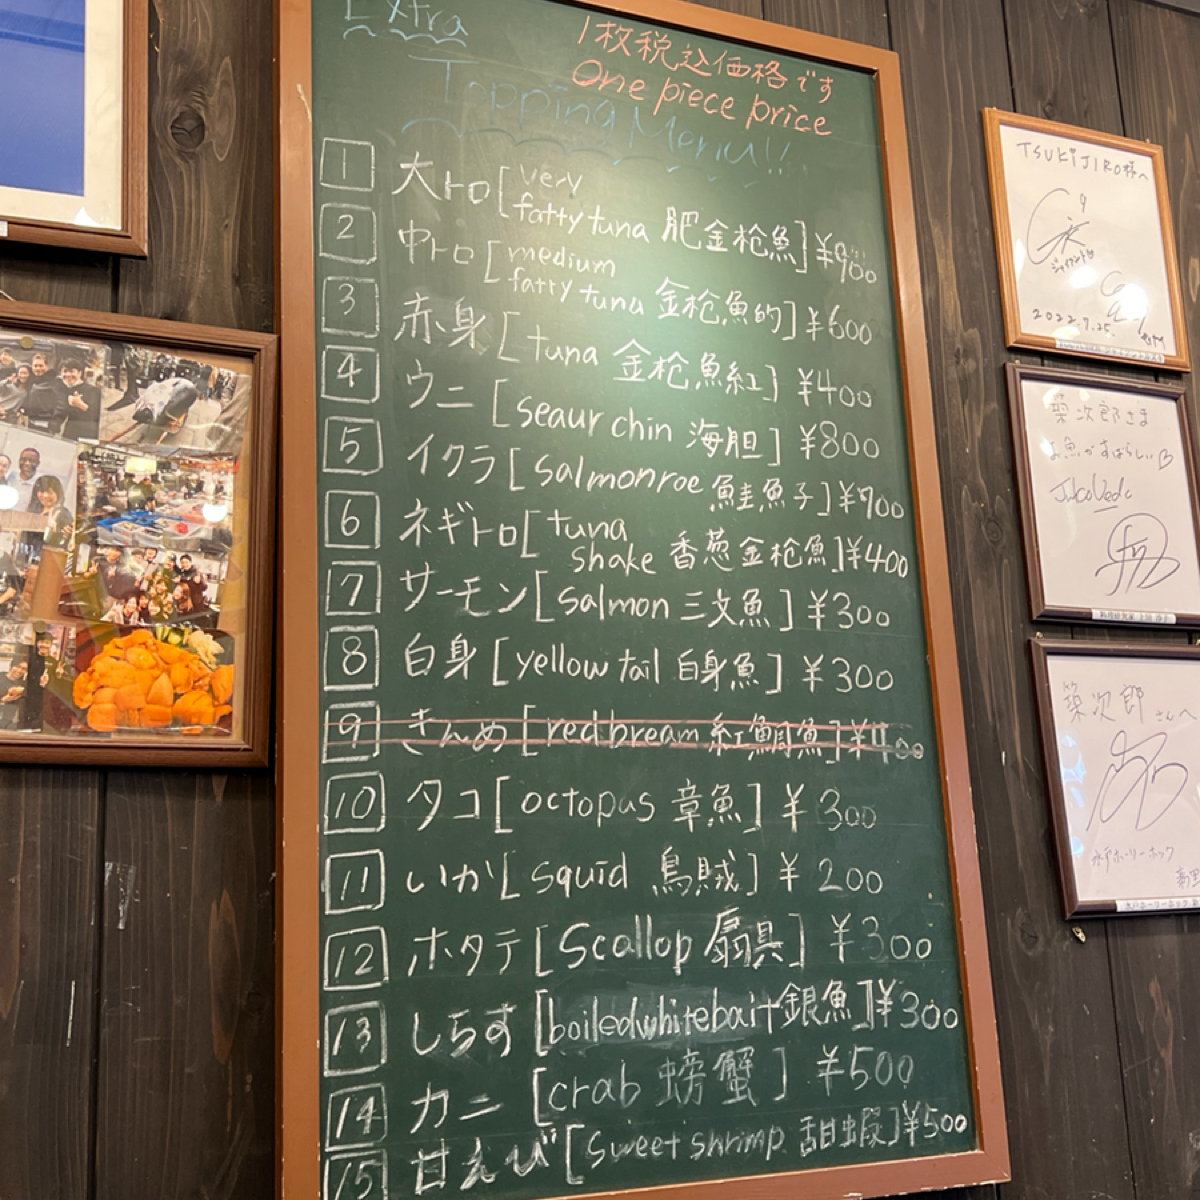 Extra
1枚税込価格です
One piece price
Topping Menu!!
1 大トロ [very fatty tuna 肥金枪魚] ¥900
2 中トロ [medium fatty tuna 金枪魚的] ¥600
3 赤身 [tuna 金枪魚紅] ¥400
4 ウニ [seaur chin 海胆] ¥800
5 イクラ [salmonroe 鮭魚子] ¥700
6 ネギトロ [tuna shake 香葱金枪魚] ¥400
7 サーモン [salmon 三文魚] ¥300
8 白身 [yellow tail 白身魚] ¥300
9 きんめ [red bream 紅鯛魚]
10 タコ [octopus 章魚] ¥300
11 いか [squid 烏賊] ¥200
12 ホタテ [Scallop 扇具] ¥300
13 しらす [boiledwhitebait 銀魚] ¥300
14 カニ [crab 螃蟹] ¥500
15 甘えび [sweet shrimp 甜蝦] ¥500
TSUKIJIRO様へ
2022.9.25.
築次郎さま
お魚がすばらしい
築次郎さんへ
水戸ホーリーホック